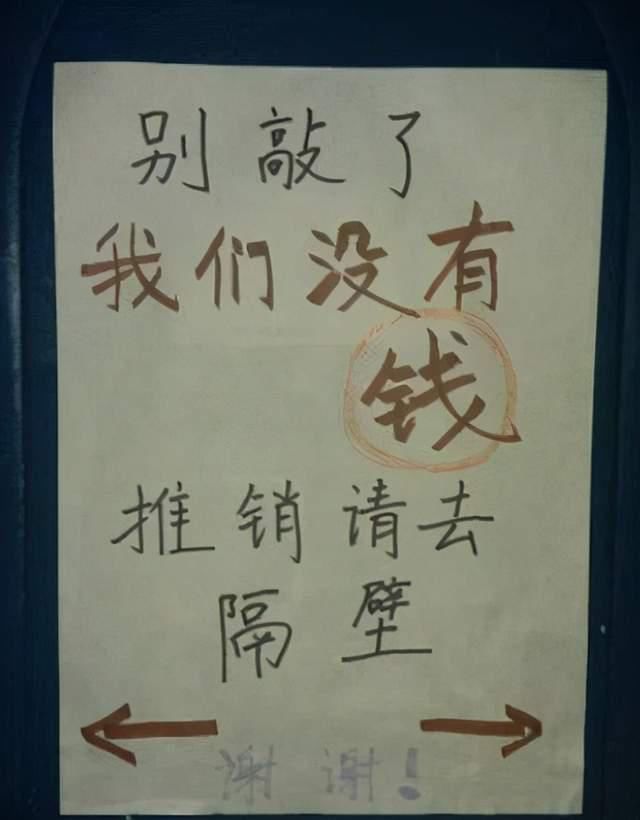 别敲了
我们没有
钱
推销请去
隔壁
谢谢！